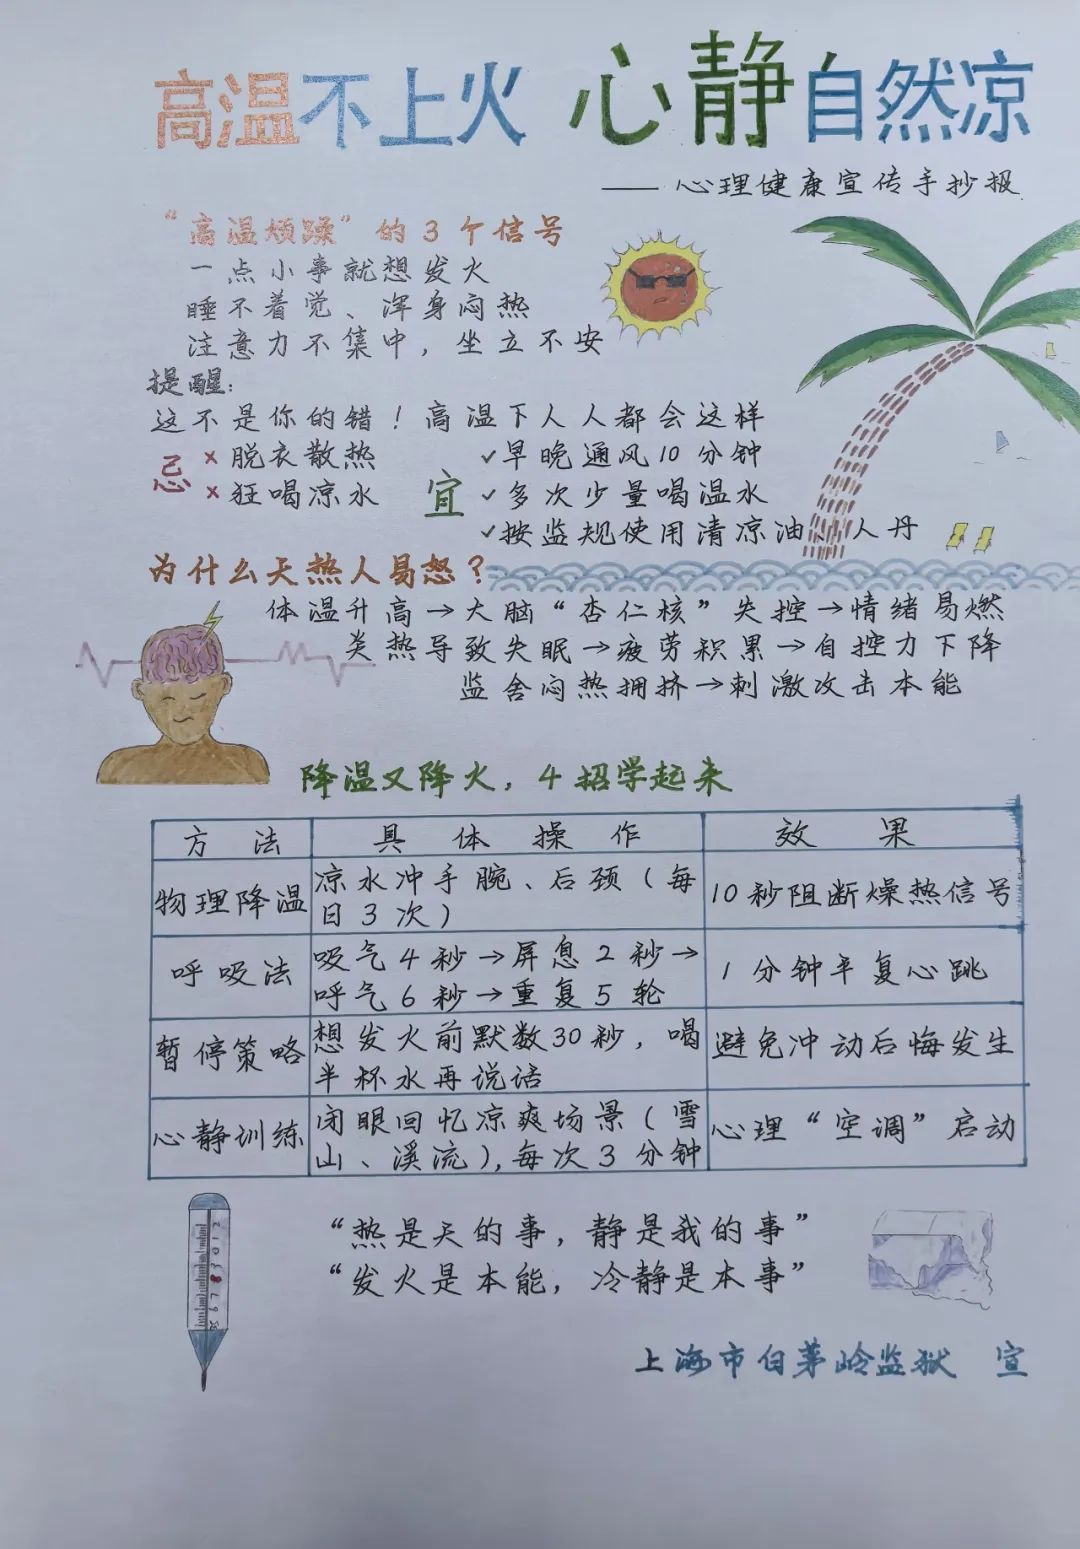 高温不上火 心静自然凉
——心理健康宣传手抄报
“高温烦躁”的3个信号
一点小事就想发火
睡不着觉、浑身闷热
注意力不集中，坐立不安
提醒：
这不是你的错！高温下人人都会这样
忌
×脱衣散热
×狂喝凉水
宜
✓早晚通风10分钟
✓多次少量喝温水
✓按监规使用清凉油、人丹
为什么天热人易怒？
体温升高→大脑“杏仁核”失控→情绪易燃
炎热导致失眠→疲劳积累→自控力下降
监舍闷热拥挤→刺激攻击本能
降温又降火，4招学起来
方法 具体操作 效果
物理降温 凉水冲手腕、后颈（每日3次） 10秒阻断燥热信号
呼吸法 吸气4秒→屏息2秒→呼气6秒→重复5轮 1分钟平复心跳
暂停策略 想发火前默数30秒，喝半杯水再说话 避免冲动后悔发生
心静训练 闭眼回忆凉爽场景（雪山、溪流），每次3分钟 心理“空调”启动
“热是天的事，静是我的事”
“发火是本能，冷静是本事”
上海市白茅岭监狱 宣